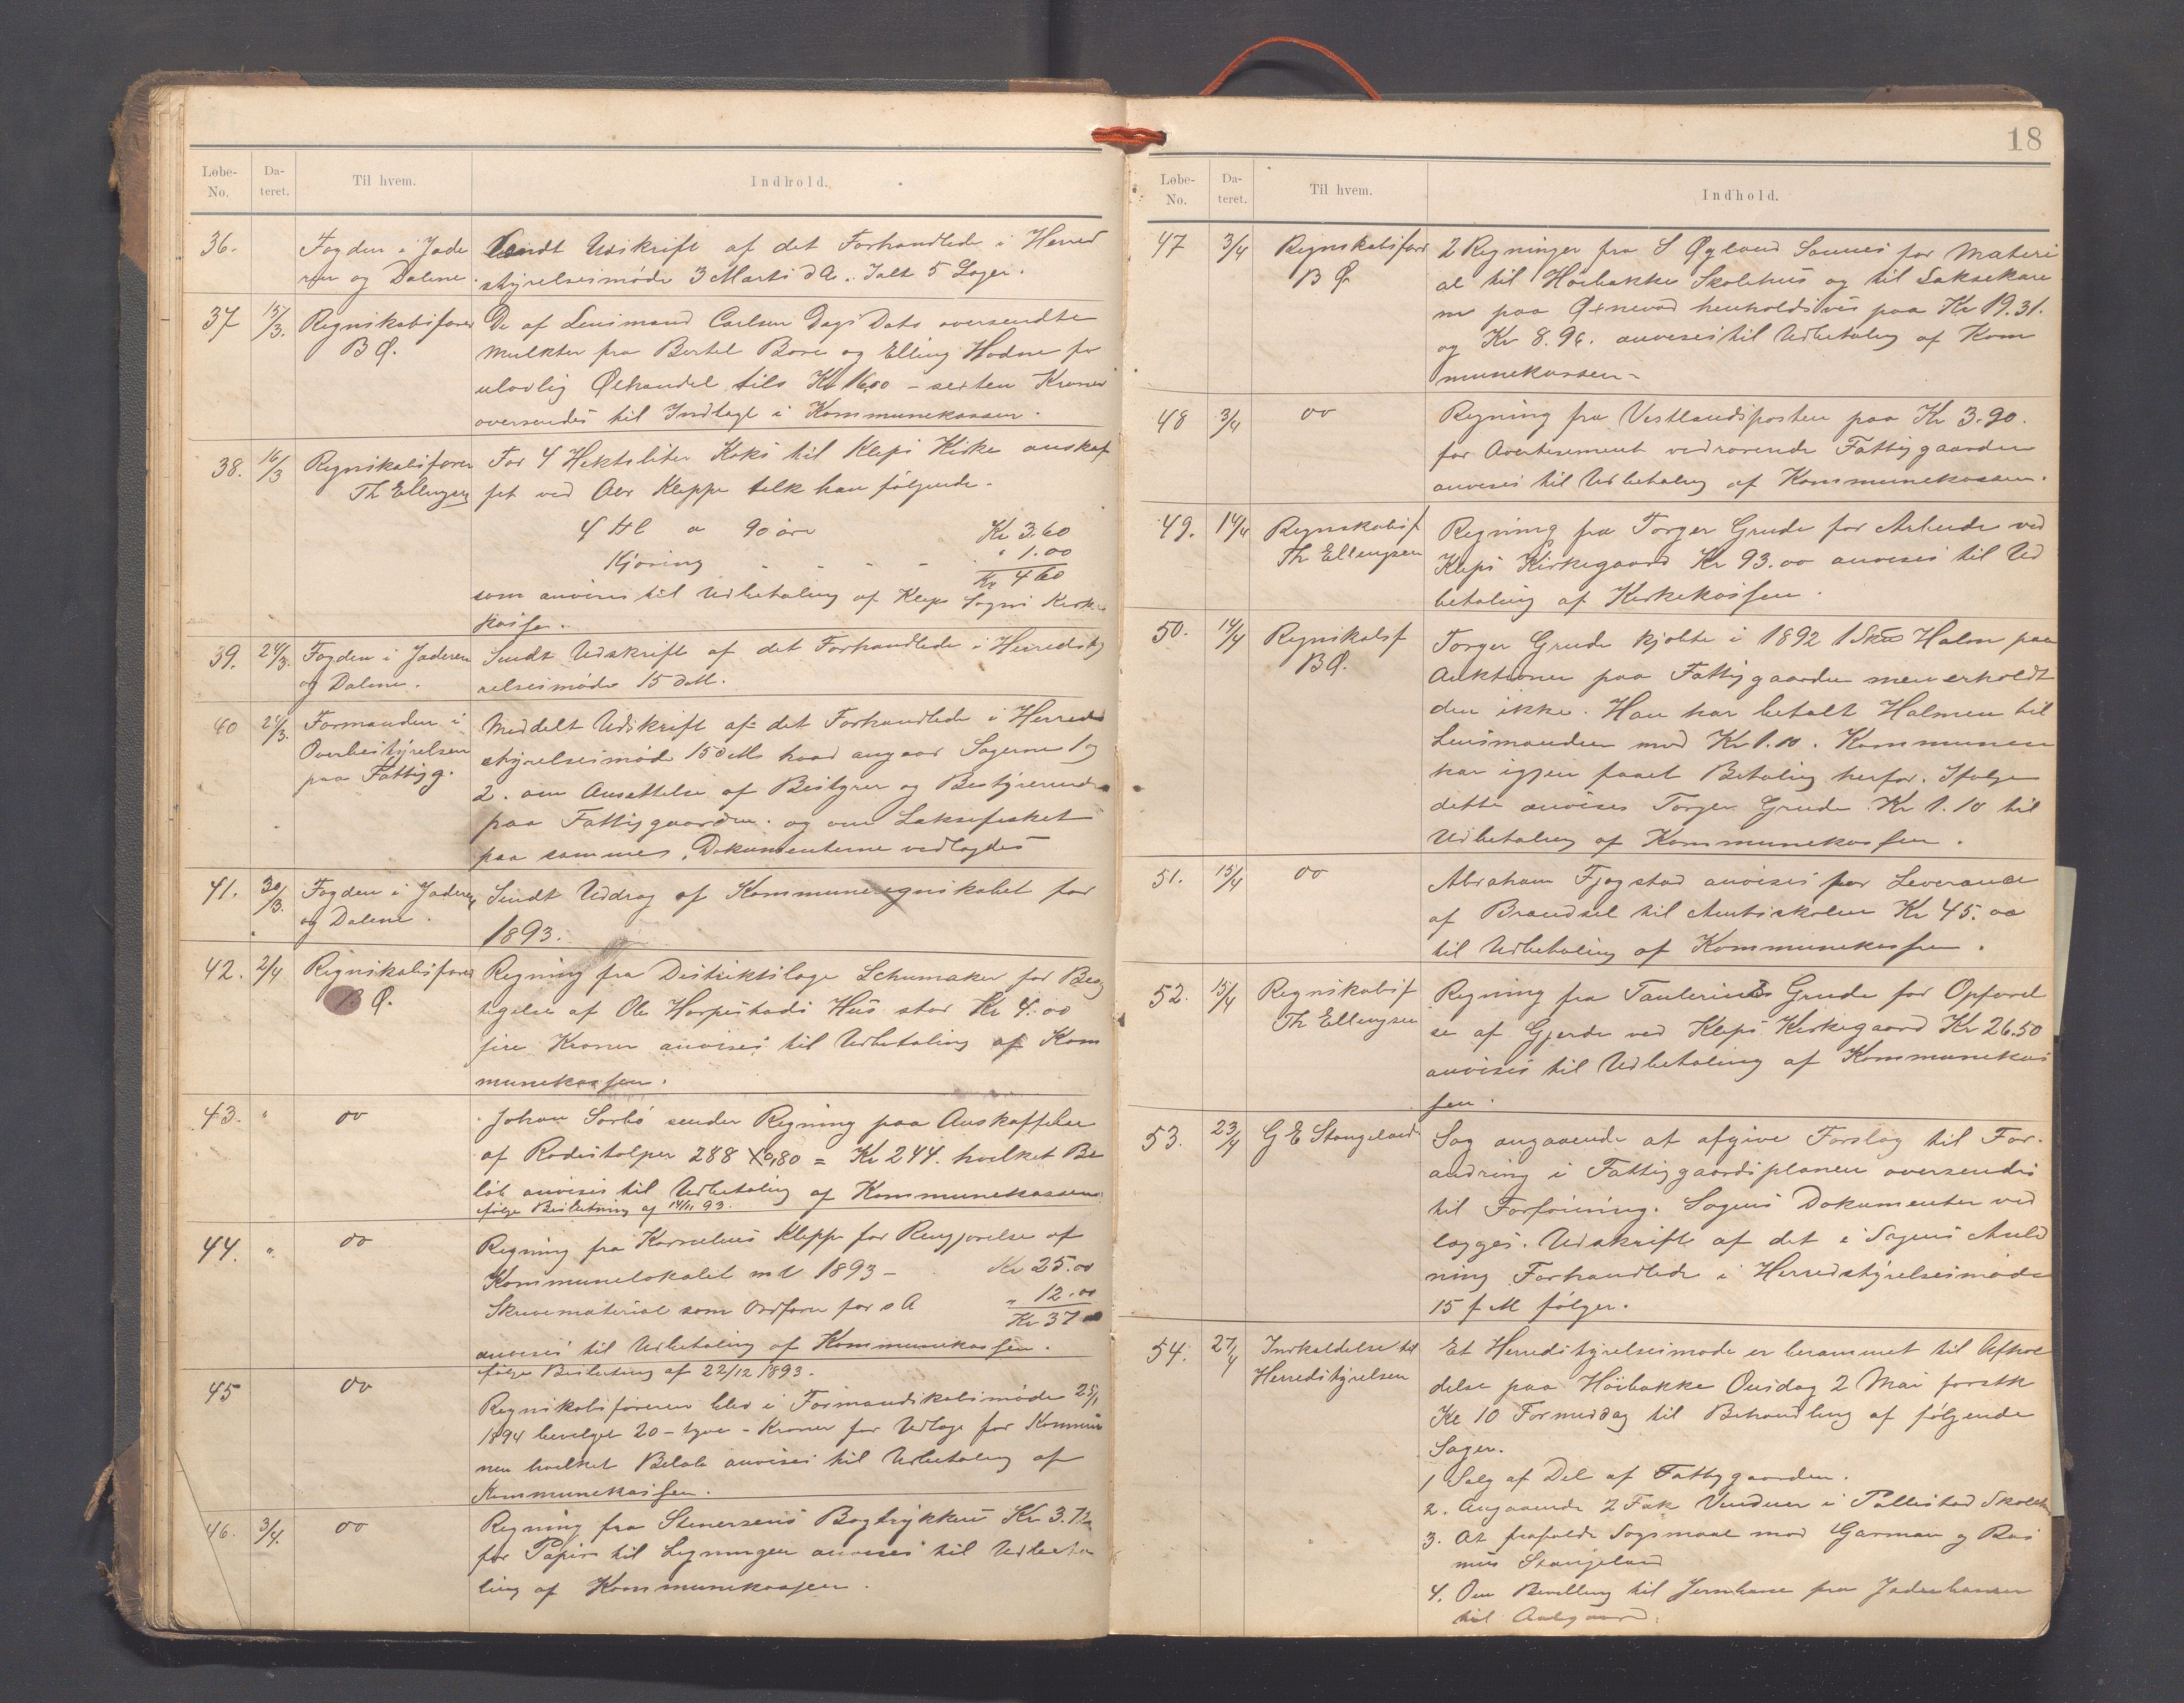 Løbe- No.
Da- teret.
Til hvem.
Indhold.
36. Fogden i Jade Sendt Udskrift af det Forhandlede i Herred
ren og Dalene. styrelsesmøde 3 Marts d A. Ialt 5 Sager.
37 15/3. Regnskabsfører De af Lensmand Carlsen Dags Dato oversendte
B Ø. Mulkter fra Bertel Bore og Elling Hodne for
ulovlig Ølhandel tils Kr 16,00 – sexten Kroner
oversendes til Indtægt i Kommunekassen.
38. 16/3 Regnskabsfører For 4 Hektoliter Koks til Kleps Kirke anskaf
Th Ellingsen fet ved Abr Kleppe tilk han følgende.
4 Hl a 90 øre Kr 3.60
Kjøring - - - - " 1.00
Kr 4 60
som anvises til Udbetaling af Klepp Sogns Kirke
kasse.
39. 24/3. Fogden i Jæderen Sendt Udskrift af det Forhandlede i Herredsty
og Dalene. relsesmøde 15 d M.
40 24/3. Formanden i Meddelt Udskrift af det Forhandlede i Herreds
Overbestyrelsen styrelsesmøde 15 d Ms hvad angaar Sagerne 1 og
paa Fattigg. 2. om Ansettelse af Bestyrer og Bestyrerinde
paa Fattiggaarden. og om Laksefisket
paa sammes. Dokumenterne vedlagdes
41. 30/3. Fogden i Jæderen Sendt Uddrag af Kommuneregnskabet for
og Dalene. 1893.
42. 2/4 Regnskabsfører Regning fra Distriktslæge Schumaker for Besig
B Ø. tigelse af Ole Horpestads Hus stor Kr 4.00
fire Kroner anvises til Udbetaling af Kom
munekassen.
43. " do Johan Sørbø sender Regning paa Anskaffelse
af Rodestolper 288 x 0,80 = Kr 244. hvilket Be
løb anvises til Udbetaling af Kommunekassen
ifølge Beslutning af 14/11 93.
44. " do Regning fra Kornelius Kleppe for Rengjørelse af
Kommunelokalet m V 1893 – Kr 25.00
Skrivematerial som Ordfører for s A " 12.00
Kr 37
anvises til Udbetaling af Kommunekassen.
ifølge Beslutning af 22/12 1893.
45 do Regnskabsføreren blev i Formandskabsmøde 25/1
1894 bevilget 20 – tyve – Kroner for Udlæg for Kommu
nen hvilket Beløb anvises til Udbetaling af
Kommunekassen.
46. 3/4. do Regning fra Stenersens Bogtrykkeri Kr 3.72
for Papir til Ligningen anvises til Udbeta
ling af Kommunekassen.
18
Løbe- No.
Da- teret.
Til hvem.
Indhold.
47 3/4 Regnskabsfører 2 Regninger fra S Øgland Sannes for Materi
B Ø al til Høibakke Skolehus og til Laksekare
ne paa Øxnevad henholdsvis paa Kr 19.31.
og Kr 8.96. anvises til Udbetaling af Kom
munekassen –
48 3/4 do Regning fra Vestlandsposten paa Kr 3.90.
for Avertisement vedrørende Fattiggaarden
anvises til Udbetaling af Kommunekassen.
49. 14/4 Regnskabsf Regning fra Torger Grude for Arbeide ved
Th Ellingsen Kleps Kirkegaard Kr 93.00 anvises til Ud
betaling af Kirkekassen.
50. 14/4 Regnskabsf Torger Grude kjøbte i 1892 1 Halm paa
B Ø. Auktionen paa Fattiggaarden men erholdt
den ikke. Han har betalt Halmen til
Lensmanden med Kr 1.10. Kommunen
har igjen faaet Betaling herfor. Ifølge
dette anvises Torger Grude Kr 1.10 til
Udbetaling af Kommunekassen.
51. 15/4 do Abraham Fjogstad anvises for Leverance
af Brændsel til Amtsskolen Kr 45.00
til Udbetaling af Kommunekassen.
52. 15/4 Regnskabsf Regning fra Grude for Opførel
Th Ellingsen se af Gjerde ved Kleps Kirkegaard Kr 26.50
anvises til Udbetaling af Kommunekas
sen.
53. 23/4 G E Stangeland Sag angaaende at afgive Forslag til For-
andring i Fattiggaardsplanen oversendes
til Forføining. Sagens Dokumenter ved
lægges. Udskrift af det i Sagens Anled
ning Forhandlede i Herredstyrelsesmøde
15 f M følger.
54. 27/4 Indkaldelse til Et Herredstyrelsesmøde er berammet til Afhol
Herredstyrelsen delse paa Høibakke Onsdag 2 Mai førstk
Kl 10 Formiddag til Behandling af følgende
Sager.
1 Salg af Del af Fattiggaarden.
2. Angaaende 2 Fak Vinduer i Pollestad Skolehus
3. At frafalde Søgsmaal mod Garman og Ras
mus Stangeland
4. Om Bevilling til Jernbane fra Jæderbanen
til Aalgaard.